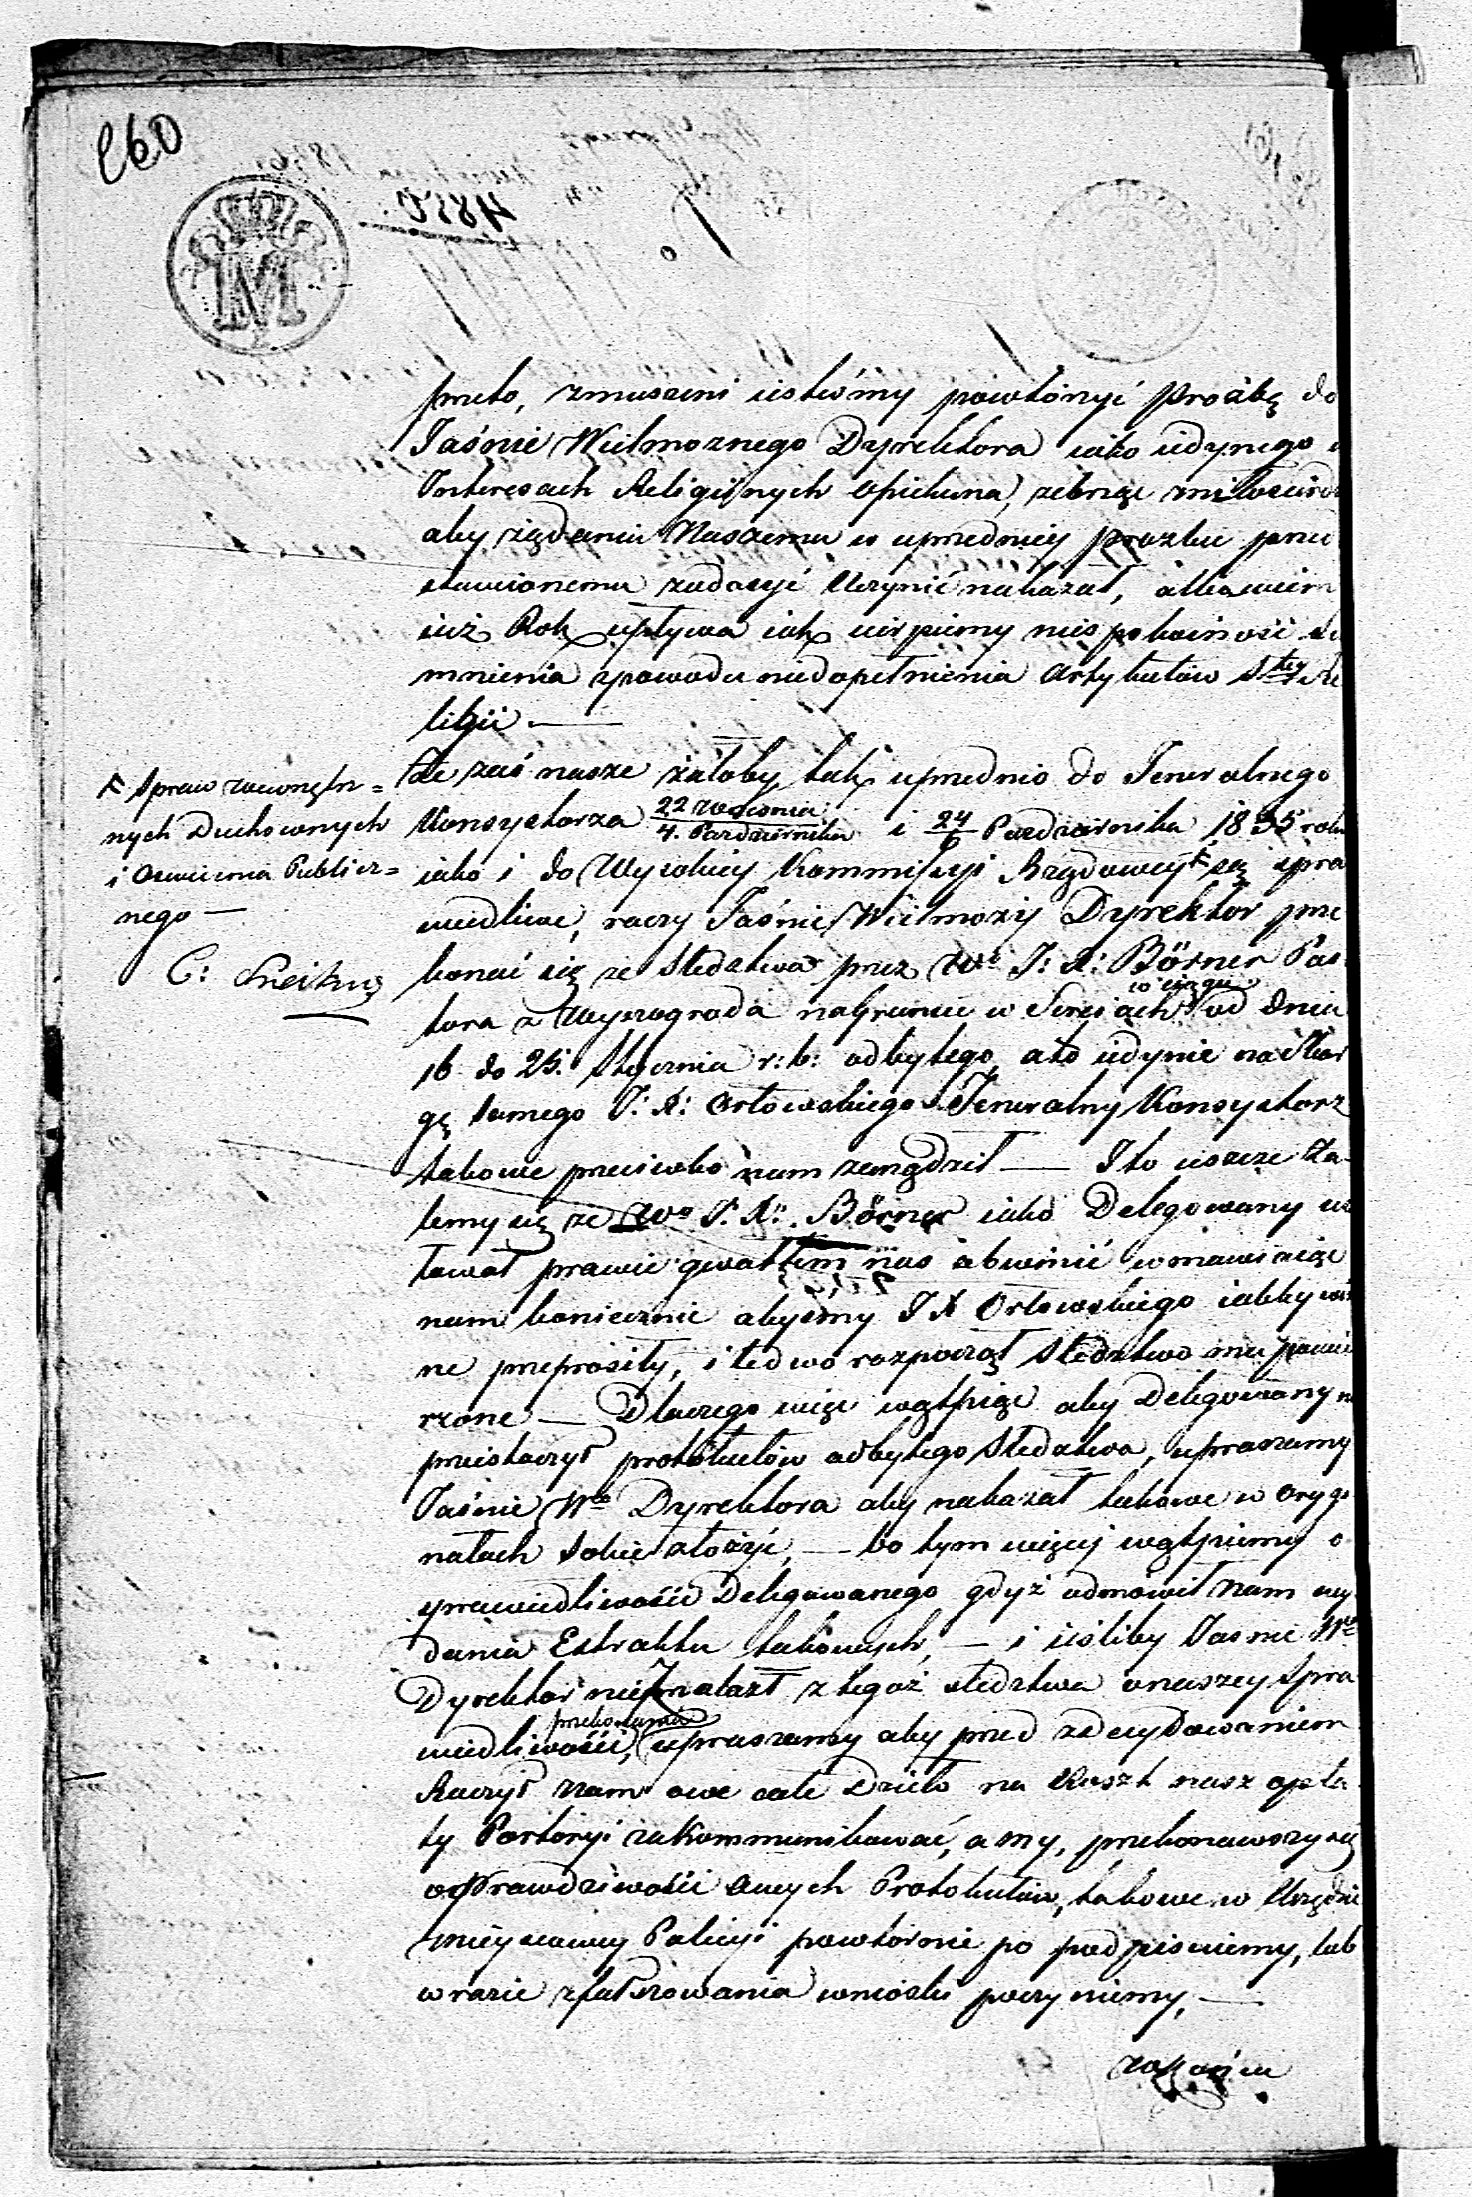 260
4850
przeto, zmuszeni iestesmy powtórzyć Prożbę do
Jaśnie Wielmoznego Dyrektora iako iedynego w
Interesach Religiinych Opiekuna, zebrząc miłosierdzi
aby żądaniu Naszemu w uprzedniéy prozbie przed
stawionemu zadosyć Uczynić nakazał, albowiem
iuż Rok upływa iak cierpiemy niespokoiność su
mnienia zpowodu niedopełnienia Artykułów Stey Re
ligii. —
Ze zaś nasze żałoby, tak uprzednio do Jeneralnego
Konsystorza 22 Września / 4. Pazdziernika i 24 / 6 Pazdziernika 1835 roku
iako i do Wysokiey Kommissyi Rządowey F są spra
wiedliwe, raczy Jaśnie Wielmożny Dyrektor prze
konać się ze Sledztwa przez Wo J: X: Börner Pas
tora z Wyszogroda nagruncie w w ciągu od dnia
16 do 25. Stycznia r: b: odbytego, ato iedynie na Skar
gę samego J: X: Orłowskiego Jeneralny Konsystorz
takowe przeciwko nam zarządził — I to ieszcze Ża
lemy się ze Wo J. X: Börner iako Delegowany
prawie gwałtem nas obwinić wmawiaiąc
nam koniecznie abyśmy J X Orłowskiego
ne przeprosiły, i ledwo rozpoczął Sledztwo mu powie
rzone — Dlaczego więc wątpiąc aby Delegowany n
przeistoczył protokułów odbytego Sledztwa, upraszamy
Jaśnie Wo Dyrektora aby nakazał takowe w Orygi
nałach Sobie złożyć, — bo tym więcej wątpiemy o
sprawiedliwości Delegowanego gdyż odmówił Nam wy
dania Extraktu takowych, — i ieśliby Jasnie Wo
Dyrektor nieznalazł z tegoż sledztwa onaszey Spra
wiedliwości, przekonania upraszamy aby przed zdecydowaniem
Raczył Nam owe całe Dzieło na Koszt nasz opła
ty Portoryi zakommunikować, a my, przekonawszy się
oPrawdziwości owych Protokułów, takowe w Urzędzie
mieyscowey Policyi powtórnie po podpisuiemy, lub
w razie zfałszowania wnioski poczyniemy, —
F Spraw wewnętrz=
nych Duchownych
i Oswiecenia Publicz=
nego —